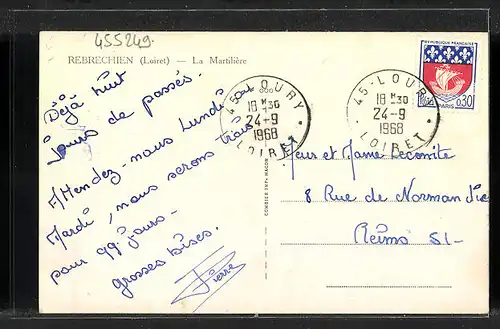 455249.
REBRECHIEN (Loiret) — La Martilière
Déjà huit
jours de passés.
A/tendez-nous Lundi ou
Mardi, nous serons trais
pour 99 jours—
grosses bises.
Pierre
45-LOURY
18 H 30
24-9
1968
LOIRET
45-LOURY
18 H 30
24-9
1968
LOIRET
REPUBLIQUE FRANÇAISE
POSTES
PARIS
0,30
COMBIER IMP. MACON
Mr et Mme Lecomte
8 Rue de Normandie
Reims 51-